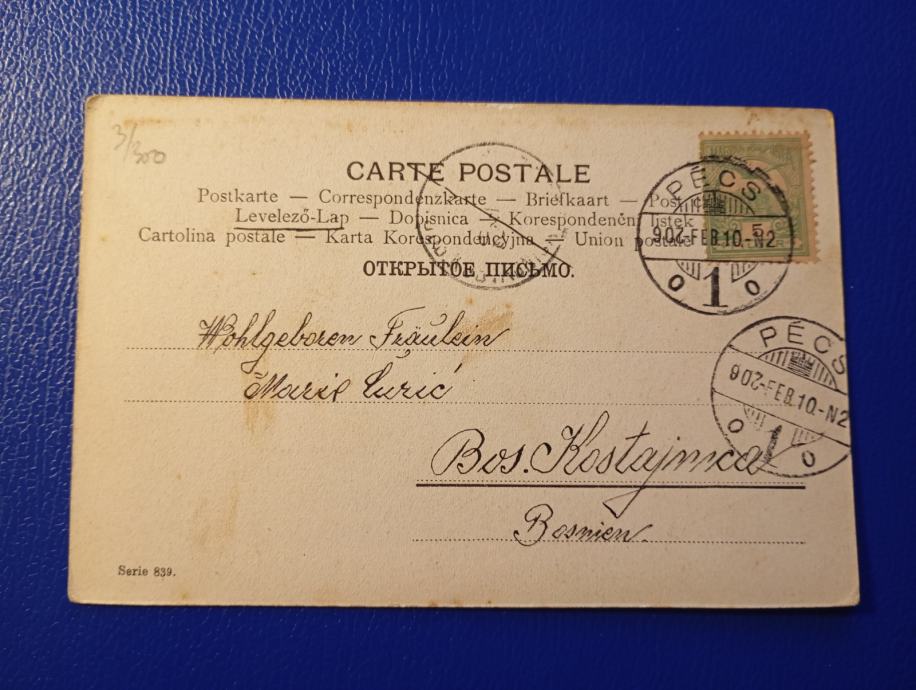 3/300
CARTE POSTALE
Postkarte — Correspondenzkarte — Briefkaart — Post
Levelező-Lap — Dopisnica — Korespondenční listek
Cartolina postale — Karta Korespondencyjna — Union postale
ОТКРЫТОЕ ПИСЬМО.
PÉCS
902-FEB.10.-N2
1
5
Wohlgeboren Fräulein
Marie
Bos. Kostajnica
Bosnien.
PÉCS
902-FEB.10.-N2
1
Serie 839.